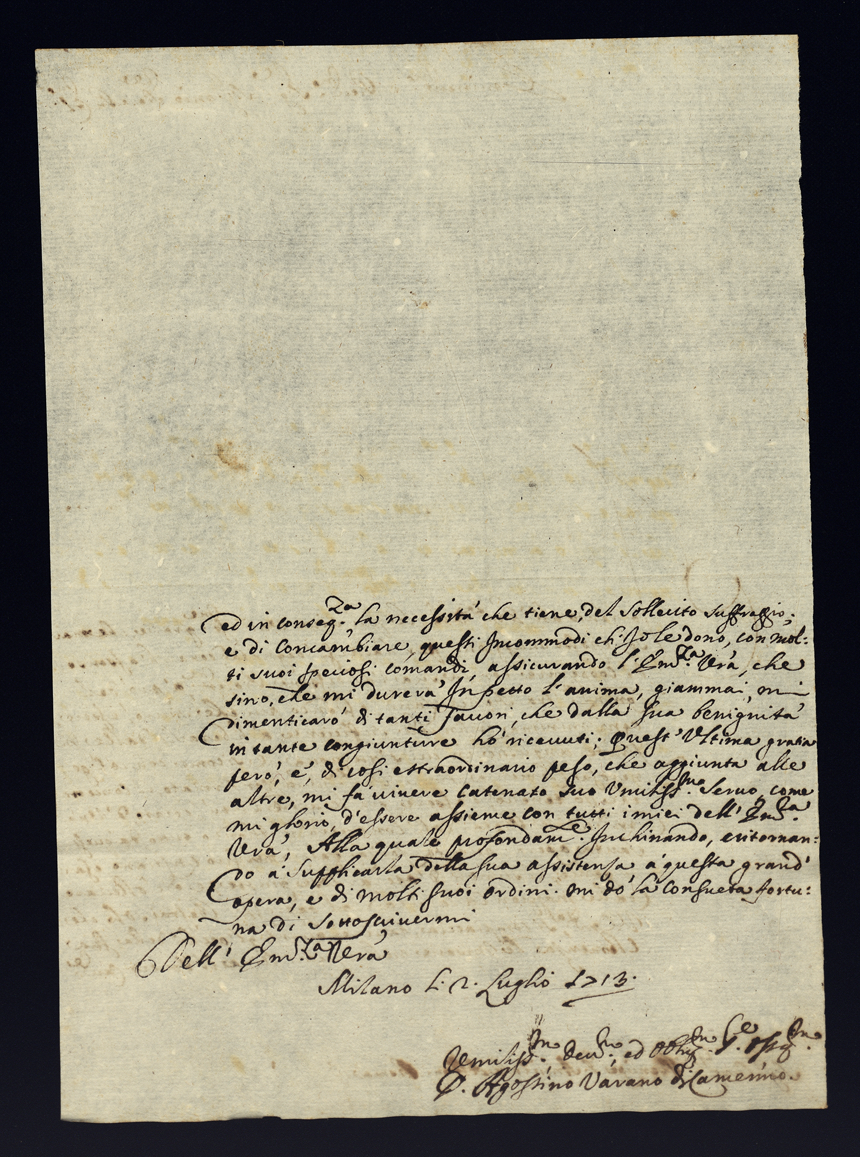 ed in conseg.za la necessità che tiene, del sollecito suffraggio:
e di Concambiare, questi Incommodi ch'Io le dono, con mol:
ti suoi speciosi comandi, assicurando l'Em.za Vrã, che
sino, che mi durerà In petto l'anima, giammai, mi
dimenticarò di tanti favori, che dalla sua benignità
in tante congiunture hò ricevuti; Quest'Ultima gratia
però, è, di così estraordinario peso, che aggiunta alle
altre, mi fà vivere catenato suo Umiliss.mo Servo, come
mi glorio, d'essere assieme con tutti i miei dell'Em.za
Vrã, Alla quale profondam.e Inchinando, e ritornan:
do à Supplicarla della sua assistenza à questa grand'
opera, e di molti suoi ordini. mi dò la Consueta fortu:
na di sottoscrivermi
Dell'Em.za Vrã
Milano li 2. Luglio 1713.
Umiliss.mo dev.mo, ed Obblig.mo
D. Agostino Varano di Camerino.